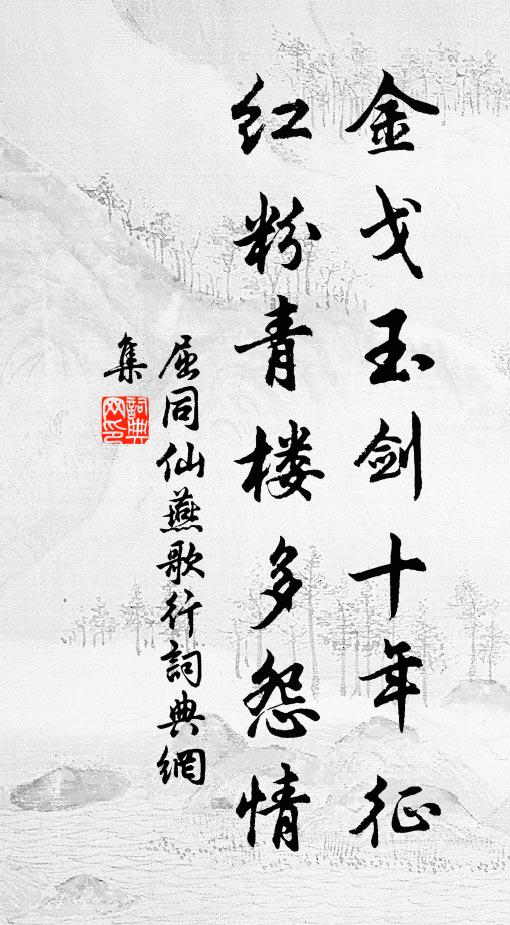 金戈玉剑十年征
红粉青楼多怨情
屈同仙燕歌行詞典網
集
詞典
网印